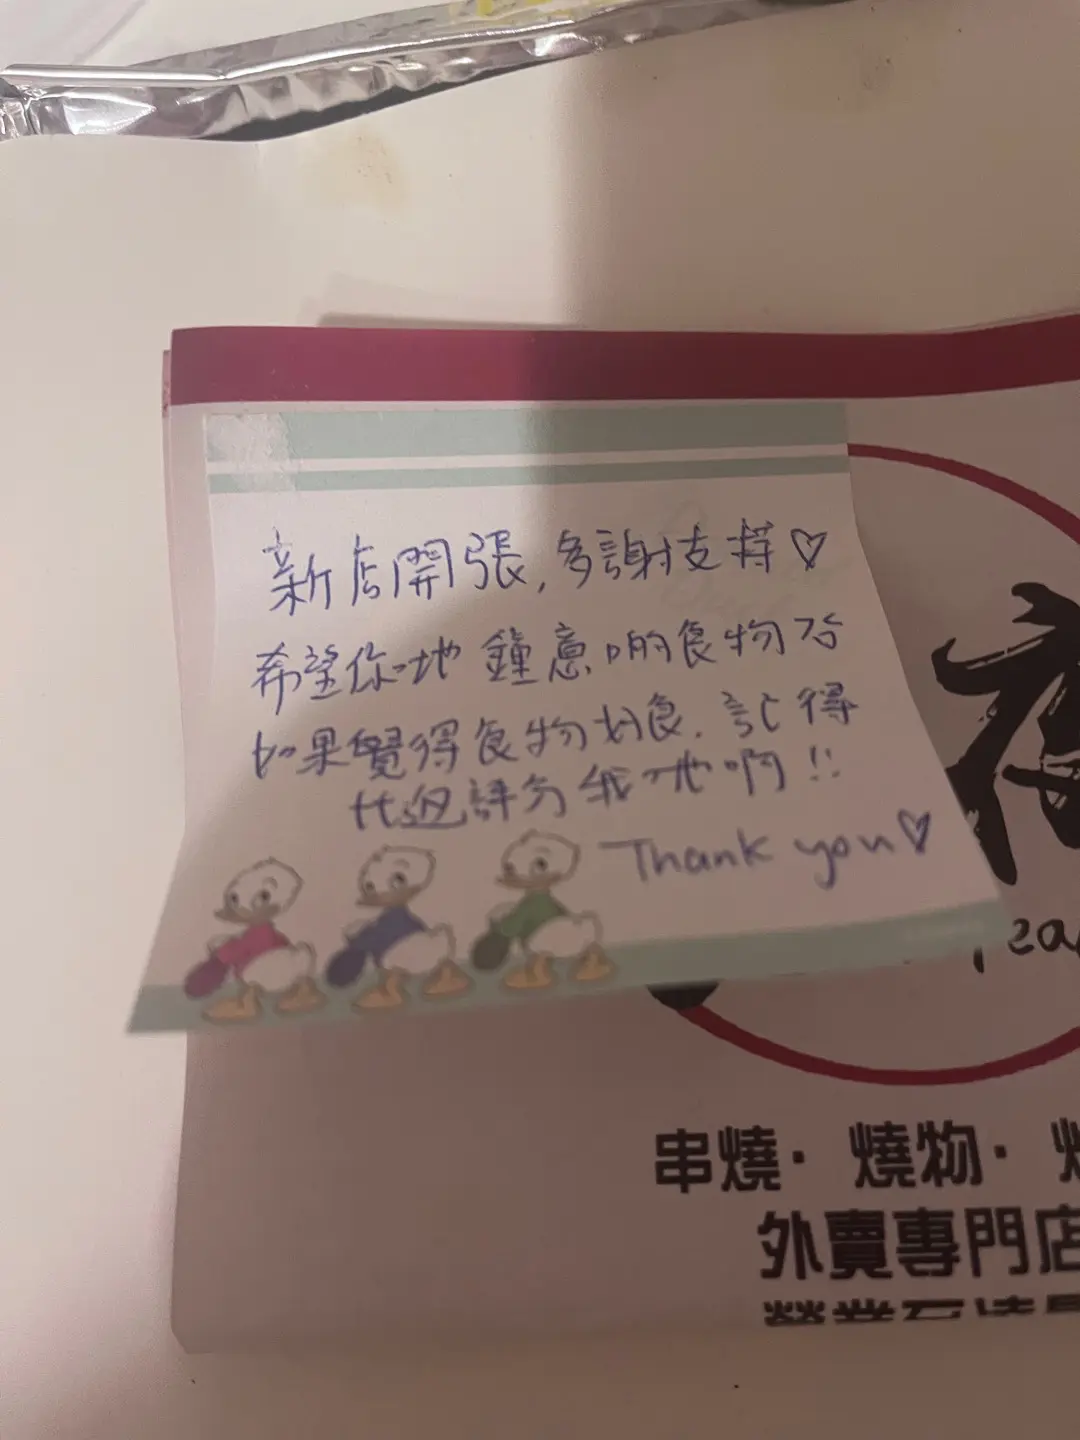 新店開張,多謝支持♡
希望你哋鐘意啲食物
如果覺得食物好食.記得
比返評分我哋啊!!
Thank you♡
串燒·燒物·
外賣專門店